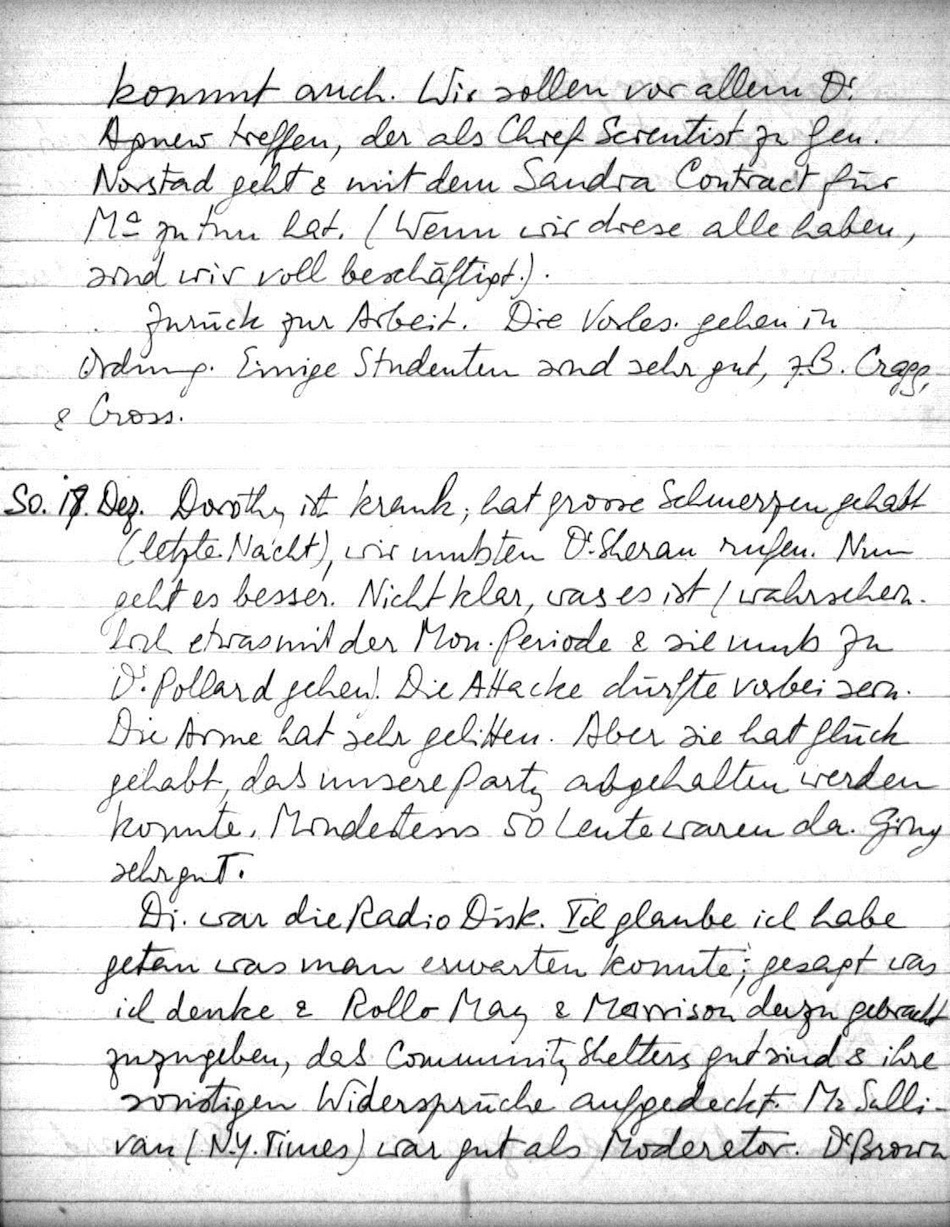 kommt auch. Wir sollen vor allem Dr.
Agnew treffen, der als Chief Scientist zu Gen.
Norstad geht & mit dem Sandia Contract für
Ma zu tun hat. (Wenn wir diese alle haben,
sind wir voll beschäftigt.).
Zurück zur Arbeit. Die Vorles. gehen in
Ordnung. Einige Studenten sind sehr gut, z.B. Cragg,
& Cross.
So. 17. Dez. Dorothy ist krank, hat grosse Schmerzen gehabt
(letzte Nacht), wir mußten Dr. Sheran rufen. Nun
geht es besser. Nicht klar, was es ist (wahrschein-
lich etwas mit der Mon. Periode & sie muß zu
Dr. Pollard gehen! Die Attacke dürfte vorbei sein.
Die Arme hat sehr gelitten. Aber sie hat Glück
gehabt, daß unsere Party abgehalten werden
konnte. Mindestens 50 Leute waren da. Ging
sehr gut.
Di. war die Radio Disk. Ich glaube ich habe
getan was man erwarten konnte; gesagt was
ich denke & Rollo May & Morrison dazu gebracht
zuzugeben, daß Community Shelters gut sind & ihre
sonstigen Widersprüche aufgedeckt. Mr Sulli-
van (N.Y. Times) war gut als Moderator. Dr Brown